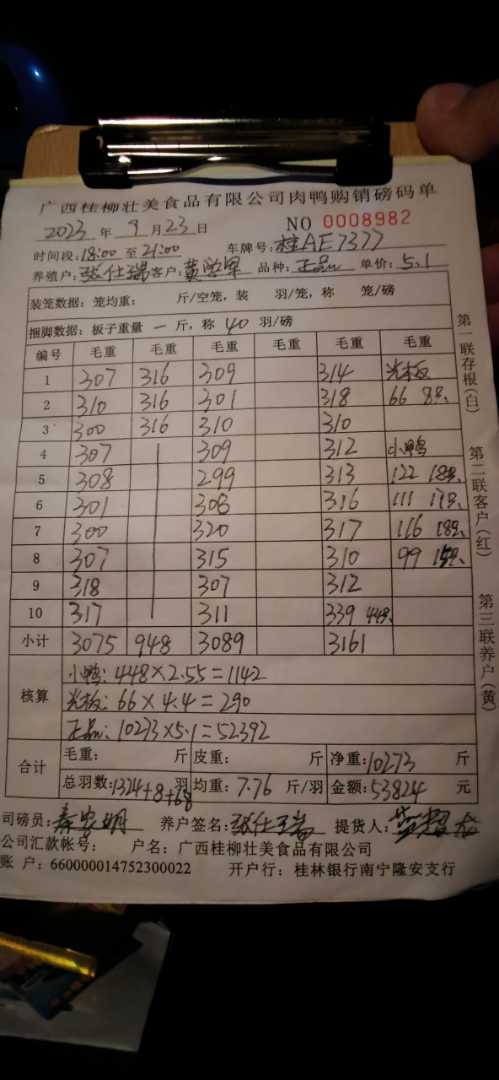 广西桂柳壮美食品有限公司肉鸭购销磅码单
2023 年 9 月 23 日 NO 0008982
时间段: 18:00 至 21:00 车牌号: 桂AE7377
养殖户: 张仕瑞 客户: 品种: 正品 单价: 5.1
装笼数据: 笼均重: 斤/空笼, 装 羽/笼, 称 笼/磅
捆脚数据: 板子重量 一 斤, 称 40 羽/磅
编号 毛重 毛重 毛重 毛重 毛重 毛重
1 307 316 309 314 光板
2 310 316 301 318 66 8只
3 300 316 310 310
4 307 309 312 小鸭
5 308 299 313 122 18只
6 301 306 316 111 17只
7 300 320 317 116 18只
8 307 315 310 99 15只
9 318 307 312
10 317 311 339 44只
小计 3075 948 3089 3161
核算
小鸭: 448×2.55=1142
光板: 66×4.4=290
正品: 10273×5.1=52392
合计
毛重: 斤 皮重: 斤 净重: 10273 斤
总羽数: 1324+8+68 羽 均重: 7.76 斤/羽 金额: 53824 元
司磅员: 养户签名: 张仕瑞 提货人:
公司汇款帐号: 户名: 广西桂柳壮美食品有限公司
账 户: 660000014752300022 开户行: 桂林银行南宁隆安支行
第一联存根(白)
第二联客户(红)
第三联养户(黄)